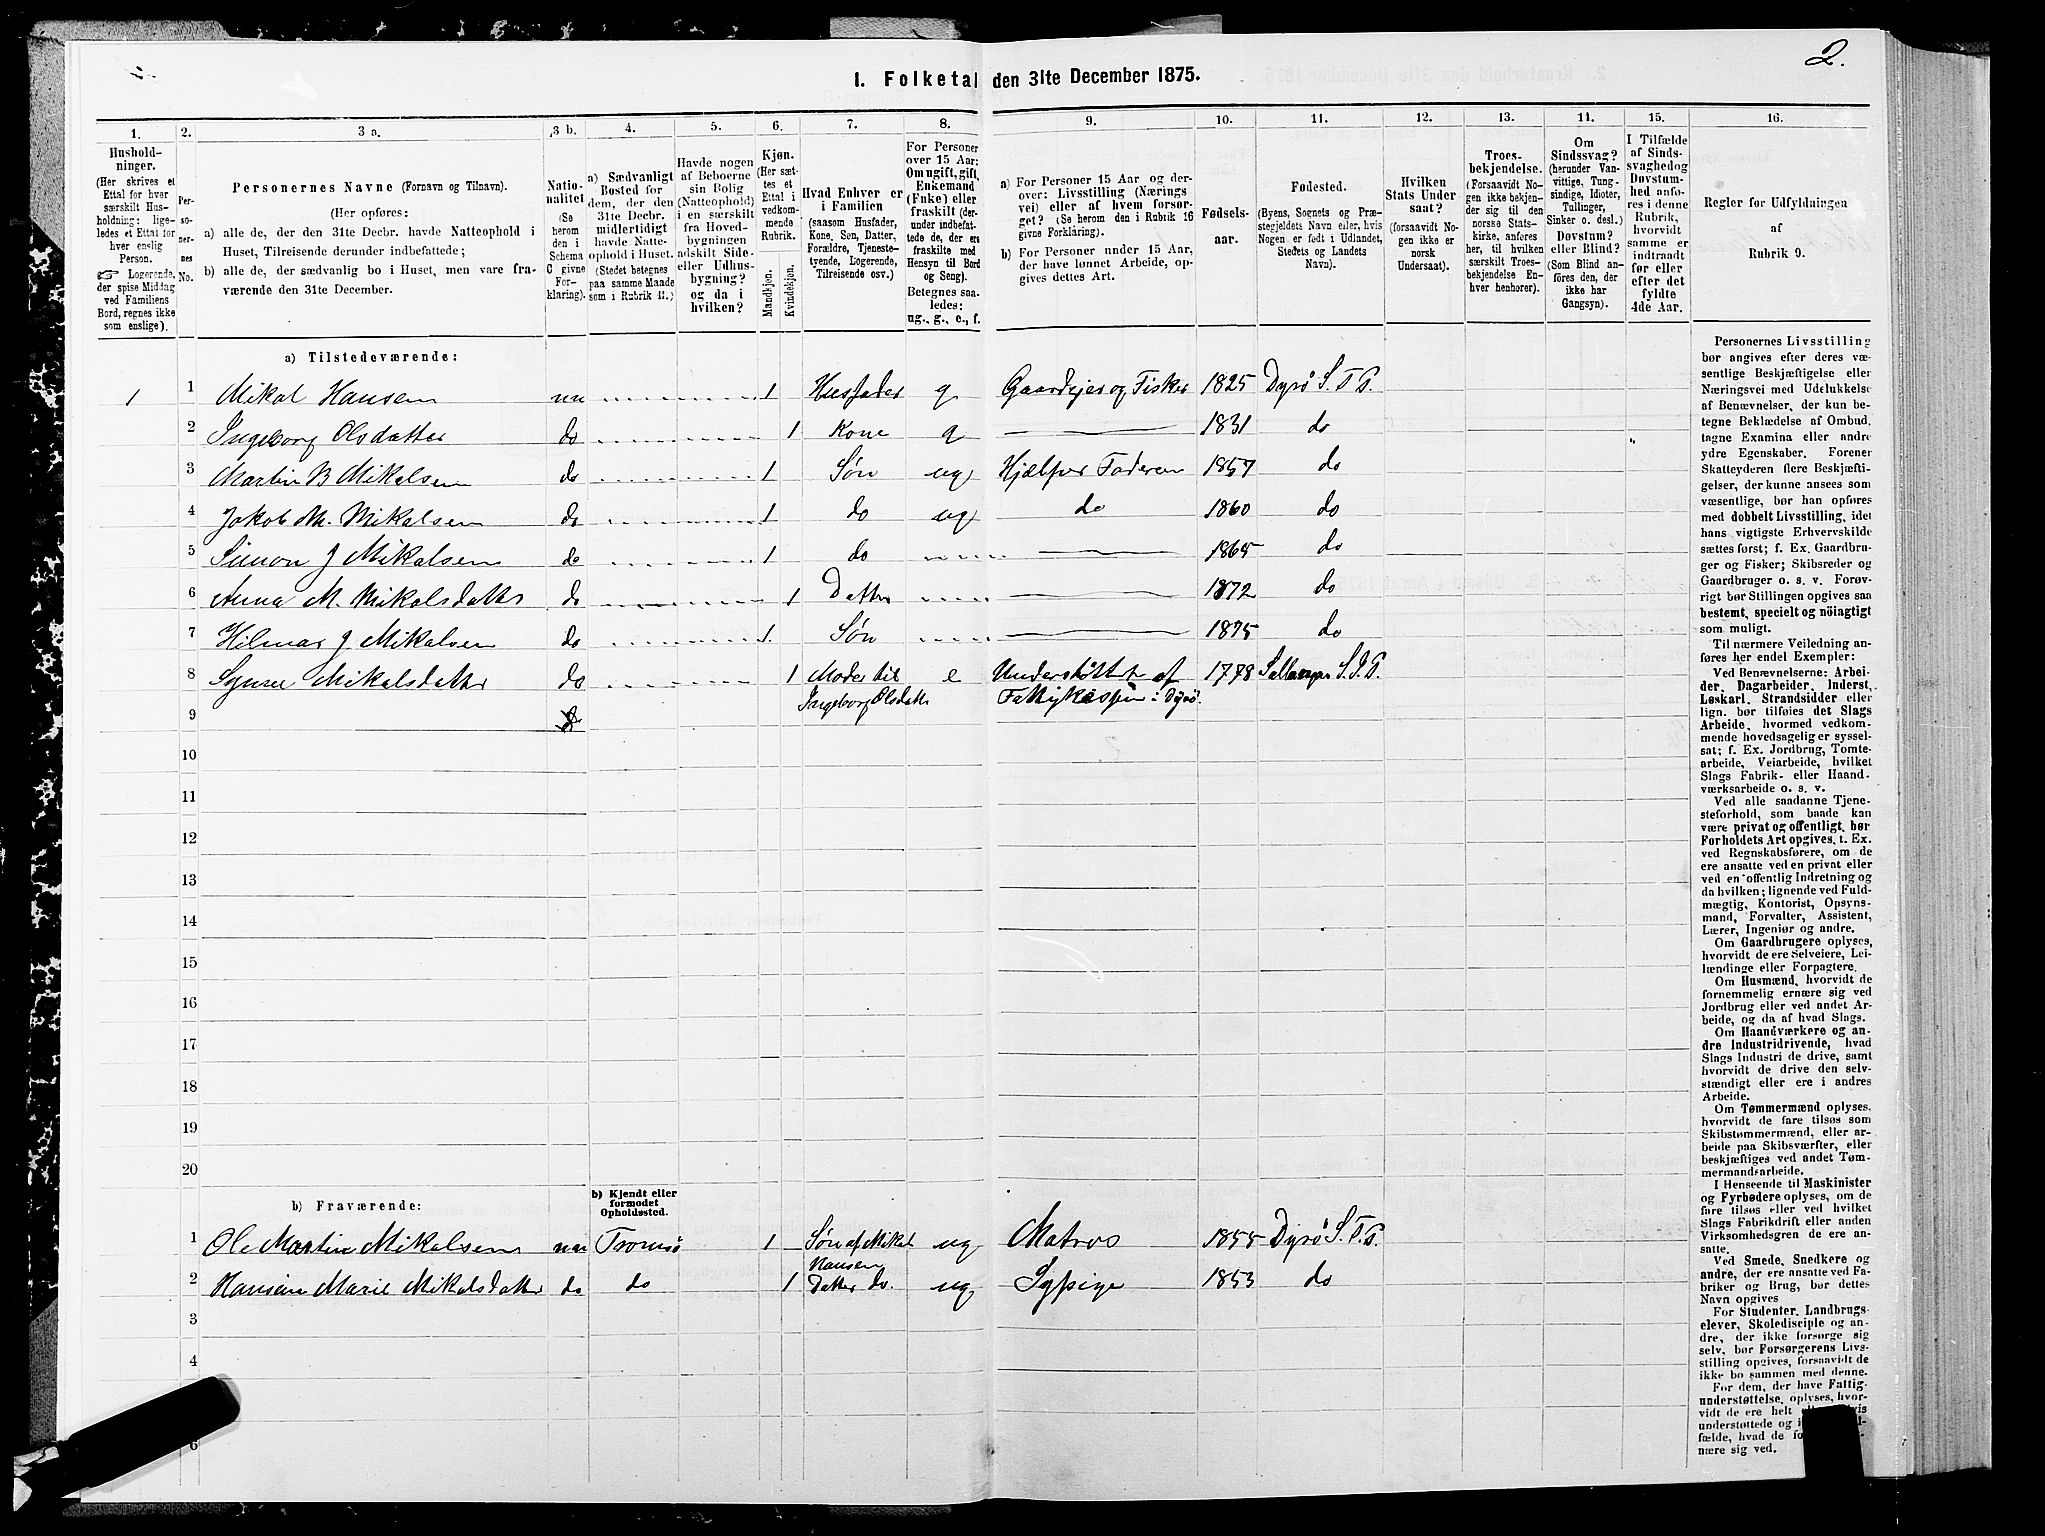 2.
1. Folketal den 31te December 1875.
1. 2. 3 a. 3 b. 4. 5. 6. 7. 8. 9. 10. 11. 12. 13. 14. 15. 16.
Hushold-
ninger.
(Her skrives et
Ettal for hver
særskilt Hus-
holdning; lige-
ledes et Ettal for
hver enslig
Person.
☞ Logerende,
der spise Middag
ved Familiens
Bord, regnes ikke
som enslige).
Per-
so-
ner-
nes
No.
Personernes Navne (Fornavn og Tilnavn).
(Her opføres:
a) alle de, der den 31te Decbr. havde Natteophold i
Huset, Tilreisende derunder indbefattede;
b) alle de, der sædvanlig bo i Huset, men vare fra-
værende den 31te December.
Natio-
nalitet
(Se
herom
den i
Schema
C givne
For-
klaring).
a) Sædvanligt
Bosted for
dem, der den
31te Decbr.
midlertidigt
havde Natte-
ophold i Huset.
(Stedet betegnes
paa samme Maade
som i Rubrik 11.)
Havde nogen
af Beboerne
sin Bolig
(Natteophold)
i en særskilt
fra Hoved-
bygningen
adskilt Side-
eller Udhus-
bygning?
og da i
hvilken?
Kjøn.
(Her sæt-
tes et
Ettal i
vedkom-
mende
Rubrik.
Mandkjøn.
Kvindekjøn.
Hvad Enhver er
i Familien
(saasom Husfader,
Kone, Søn, Datter,
Forældre, Tjeneste-
tyende, Logerende,
Tilreisende osv.)
For Personer
over 15 Aar:
Om ugift, gift,
Enkemand
(Enke) eller
fraskilt (der-
under indbefat-
tede de, der ere
fraskilte med
Hensyn til Bord
og Seng).
Betegnes saa-
ledes:
ug., g., e., f.
a) For Personer 15 Aar og der-
over: Livsstilling (Nærings
vei) eller af hvem forsør-
get? (Se herom den i Rubrik 16
givne Forklaring).
b) For Personer under 15 Aar,
der have lønnet Arbeide, op-
gives dettes Art.
Fødsels-
aar.
Fødested.
(Byens, Sognets og Præ-
stegjeldets Navn eller, hvis
Nogen er født i Udlandet,
Stedets og Landets
Navn).
Hvilken
Stats Under
saat?
(forsaavidt No-
gen ikke er
norsk
Undersaat).
Troes-
bekjendelse.
(Forsaavidt No-
gen ikke bekjen-
der sig til den
norske Stats-
kirke, anføres
her, til hvilken
særskilt Troes-
bekjendelse En-
hver henhører).
Om
Sindssvag?
(herunder Van-
vittige, Tung-
sindige, Idioter,
Tullinger,
Sinker o. desl.)
Døvstum?
eller Blind?
(Som Blind an-
føres den, der
ikke har
Gangsyn).
I Tilfælde
af Sinds-
svaghedog
Døvstum-
hed anfø-
res i denne
Rubrik,
hvorvidt
samme er
indtraadt
før eller
efter det
fyldte
4de Aar.
Regler for Udfyldningen
af
Rubrik 9.
a) Tilstedeværende:
1 1 Mikal Hansen nn 1 Husfader g Gaardejer og Fisker 1825 Dyrö S. T. P.
2 Ingeborg Olsdatter do 1 Kone g 1831 do
3 Martin B Mikalsen do 1 Søn ug Hjælper Faderen 1857 do
4 Jakob M. Mikalsen do 1 do ug do 1860 do
5 Simon J Mikalsen do 1 do 1865 do
6 Anna M. Mikalsdatter do 1 Datter 1872 do
7 Hilmar J Mikalsen do 1 Søn 1875 do
8 Mikalsdatter do 1 Moder til e Understöttet af 1778 S. P.
Ingeborg Olsdatter Fattigkassen i Dyrö.
9
10
11
12
13
14
15
16
17
18
19
20
b) Fraværende:
b) Kjendt eller
formodet
Opholdssted.
1 Ole Martin Mikalsen nn Tromsö 1 Søn af Mikal ug Matros 1855 Dyrö S. T. P.
Hansen
2 Marie Mikalsdatter do do 1 Datter do. ug Sypige 1853 do
3
4
6
Personernes Livsstilling
bør angives efter deres væ-
sentlige Beskjæftigelse eller
Næringsvei med Udelukkelse
af Benævnelser, der kun be-
tegne Beklædelse af Ombud,
tagne Examina eller andre
ydre Egenskaber. Forener
Skatteyderen flere Beskjæfti-
gelser, der kunne ansees som
væsentlige, bør han opføres
med dobbelt Livsstilling, idet
hans vigtigste Erhvervskilde
sættes først; f. Ex. Gaardbru-
ger og Fisker; Skibsreder og
Gaardbruger o. s. v. Forøv-
rigt bør Stillingen opgives saa
bestemt, specielt og nöiagtigt
som muligt.
Til nærmere Veiledning an-
føres her endel Exempler:
Ved Benævnelserne: Arbei-
der, Dagarbeider, Inderst,
Løskarl, Strandsidder eller
lign. bør tilføies det Slags
Arbeide, hvormed vedkom-
mende hovedsagelig er syssel-
sat; f. Ex. Jordbrug, Tomte-
arbeide, Veiarbeide, hvilket
Slags Fabrik- eller Haand-
værksarbeide o. s. v.
Ved alle saadanne Tjene-
steforhold, som baade kan
være privat og offentligt, bør
Forholdets Art opgives, t. Ex.
ved Regnskabsførere, om de
ere ansatte ved en privat eller
ved en offentlig Indretning og
da hvilken; lignende ved Fuld-
mægtig, Kontorist, Opsyns-
mand, Forvalter, Assistent,
Lærer, Ingeniør og andre.
Om Gaardbrugere oplyses,
hvorvidt de ere Selveiere, Lei-
lændinge eller Forpagtere.
Om Husmænd, hvorvidt de
fornemmelig ernære sig ved
Jordbrug eller ved andet Ar-
beide, og da af hvad Slags.
Om Haandværkere og an-
dre Industridrivende, hvad
Slags Industri de drive, samt
hvorvidt de drive den selv-
stændigt eller ere i andres
Arbeide.
Om Tømmermænd oplyses,
hvorvidt de fare tilsøs som
Skibstømmermænd, eller ar-
beide paa Skibsværfter, eller
beskjæftiges ved andet Tøm-
mermandsarbeide.
I Henseende til Maskinister
og Fyrbødere oplyses, om de
fare tilsøs eller ved hvilket
Slags Fabrikdrift eller anden
Virksomhedsgren de ere an-
satte.
Ved Smede, Snedkere og
andre, der ere ansatte ved Fa-
briker og Brug, bør dettes
Navn opgives
For Studenter, Landbrugs-
elever, Skoledisciple og an-
dre, der ikke forsørge sig
selv, bør Forsørgerens Livs-
stilling opgives, forsaavidt de
ikke bo sammen med denne.
For dem, der have Fattig-
understøttelse, oplyses, hvor-
vidt de ere helt
understøttede og i
fælde, hvad de
nære sig ved.